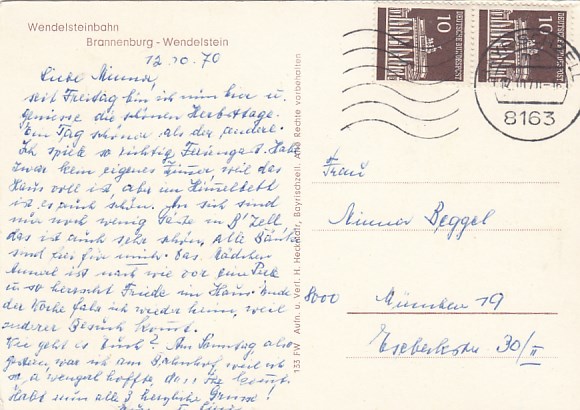 Wendelsteinbahn
Brannenburg - Wendelstein
12.10.70
Liebe Minna,
seit Freitag bin ich nun hier u.
genieße die schönen Herbsttage.
Ein Tag schöner als der andere.
Ich spiele so richtig Feriengast. Habe
zwar kein eigenes Zimmer weil das
Haus voll ist, aber im Himmelbett
ist es auch schön. An sich sind
nur noch wenig Gäste in B'Zell,
das ist auch sehr schön, alle Bänke
sind frei für mich. Das Mädchen
ist nach wie vor eine Perle
u. so herrscht Friede im Haus. Ende
der Woche fahr ich wieder heim, weil
anderer Besuch kommt.
Wie geht es Euch? Am Samstag also
gestern, war ich am Bahnhof, weil ich
a wengal hoffte, dass Ihr kommt.
Habt nun alle 3 herzliche Grüsse
133 FW Aufn. u. Verl. H. Heckmair, Bayrischzell. Alle Rechte vorbehalten
DEUTSCHE BUNDESPOST
10
DEUTSCHE BUNDESPOST
10
8163
Frau
Minna Beggel
8000 München 19
30/II